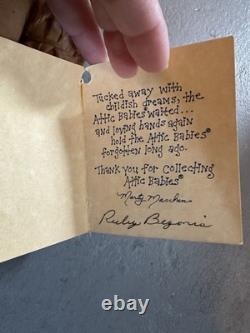 Tucked away with
childish dreams, the
Attic Babies® waited...
and loving hands again
hold the Attic Babies®
forgotten long ago.
Thank you for Collecting
Attic Babies®
Marty Maschino
Ruby Begonia